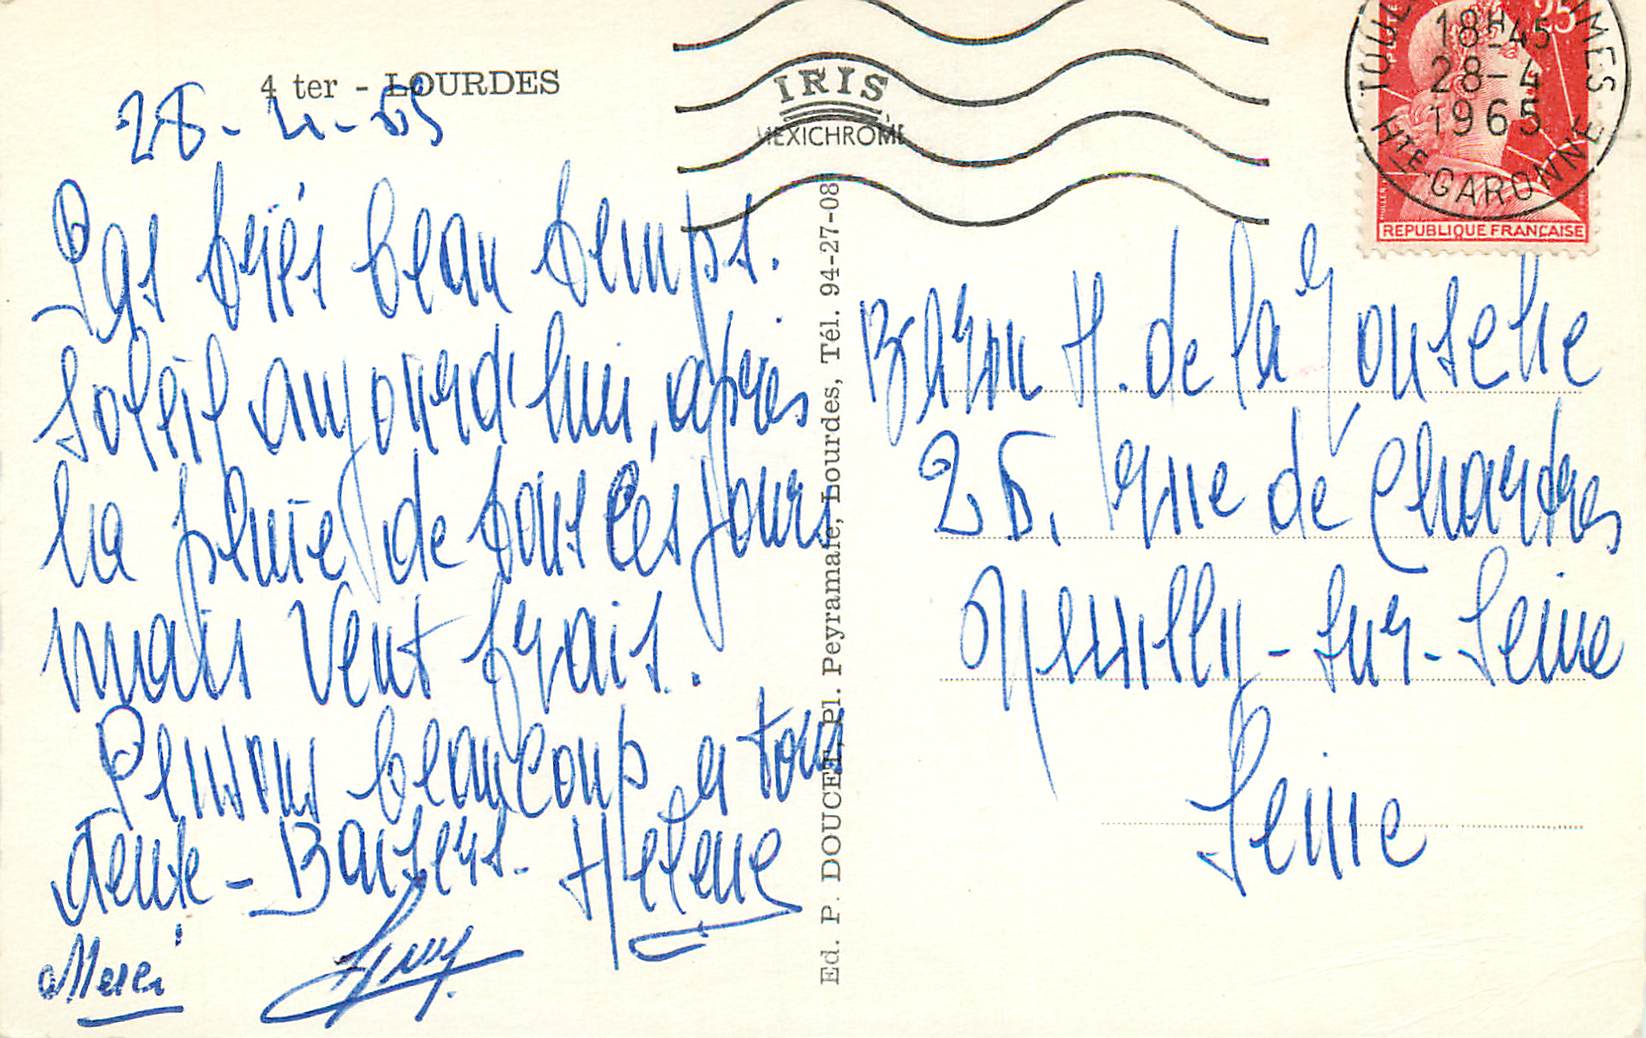 4 ter - LOURDES
28-4-65
Pas très beau temps.
Soleil aujourd'hui, après
la pluie de tous les jours
mais vent frais.
Pensons beaucoup à tous
deux - Baisers. Hélène
Merci
Guy
IRIS
MEXICHROME
Ed. P. DOUCET, Pl. Peyramale, Lourdes, Tél. 94-27-08
18H45
28-4
1965
HTE-GARONNE
25
REPUBLIQUE FRANÇAISE
Baron H. de la
25, rue de Chartres
Neuilly-sur-Seine
Seine